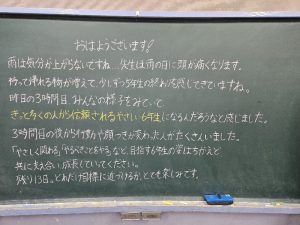 おはようございます!
雨は気分が上がらないですね…先生は雨の日に頭が痛くなります。
持って帰れる物が増えて、少しずつ5年生の終わりを感じてきていますね。
昨日の3時間目、みんなの様子をみていて
きっと多くの人から信頼されるやさしい6年生になるんだろうなと感じました。
3時間目の後から行動や顔つきが変わった人がたくさんいました。
「やさしく関わる」「やるべきことをやる」など、目指す6年生の姿はちがえど
共に支え合い成長していってください。
残り13日。どれだけ目標に近づけるか、とても楽しみです。